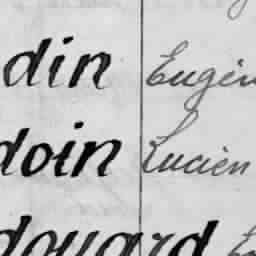 din Eugèn
doin Lucien
douard